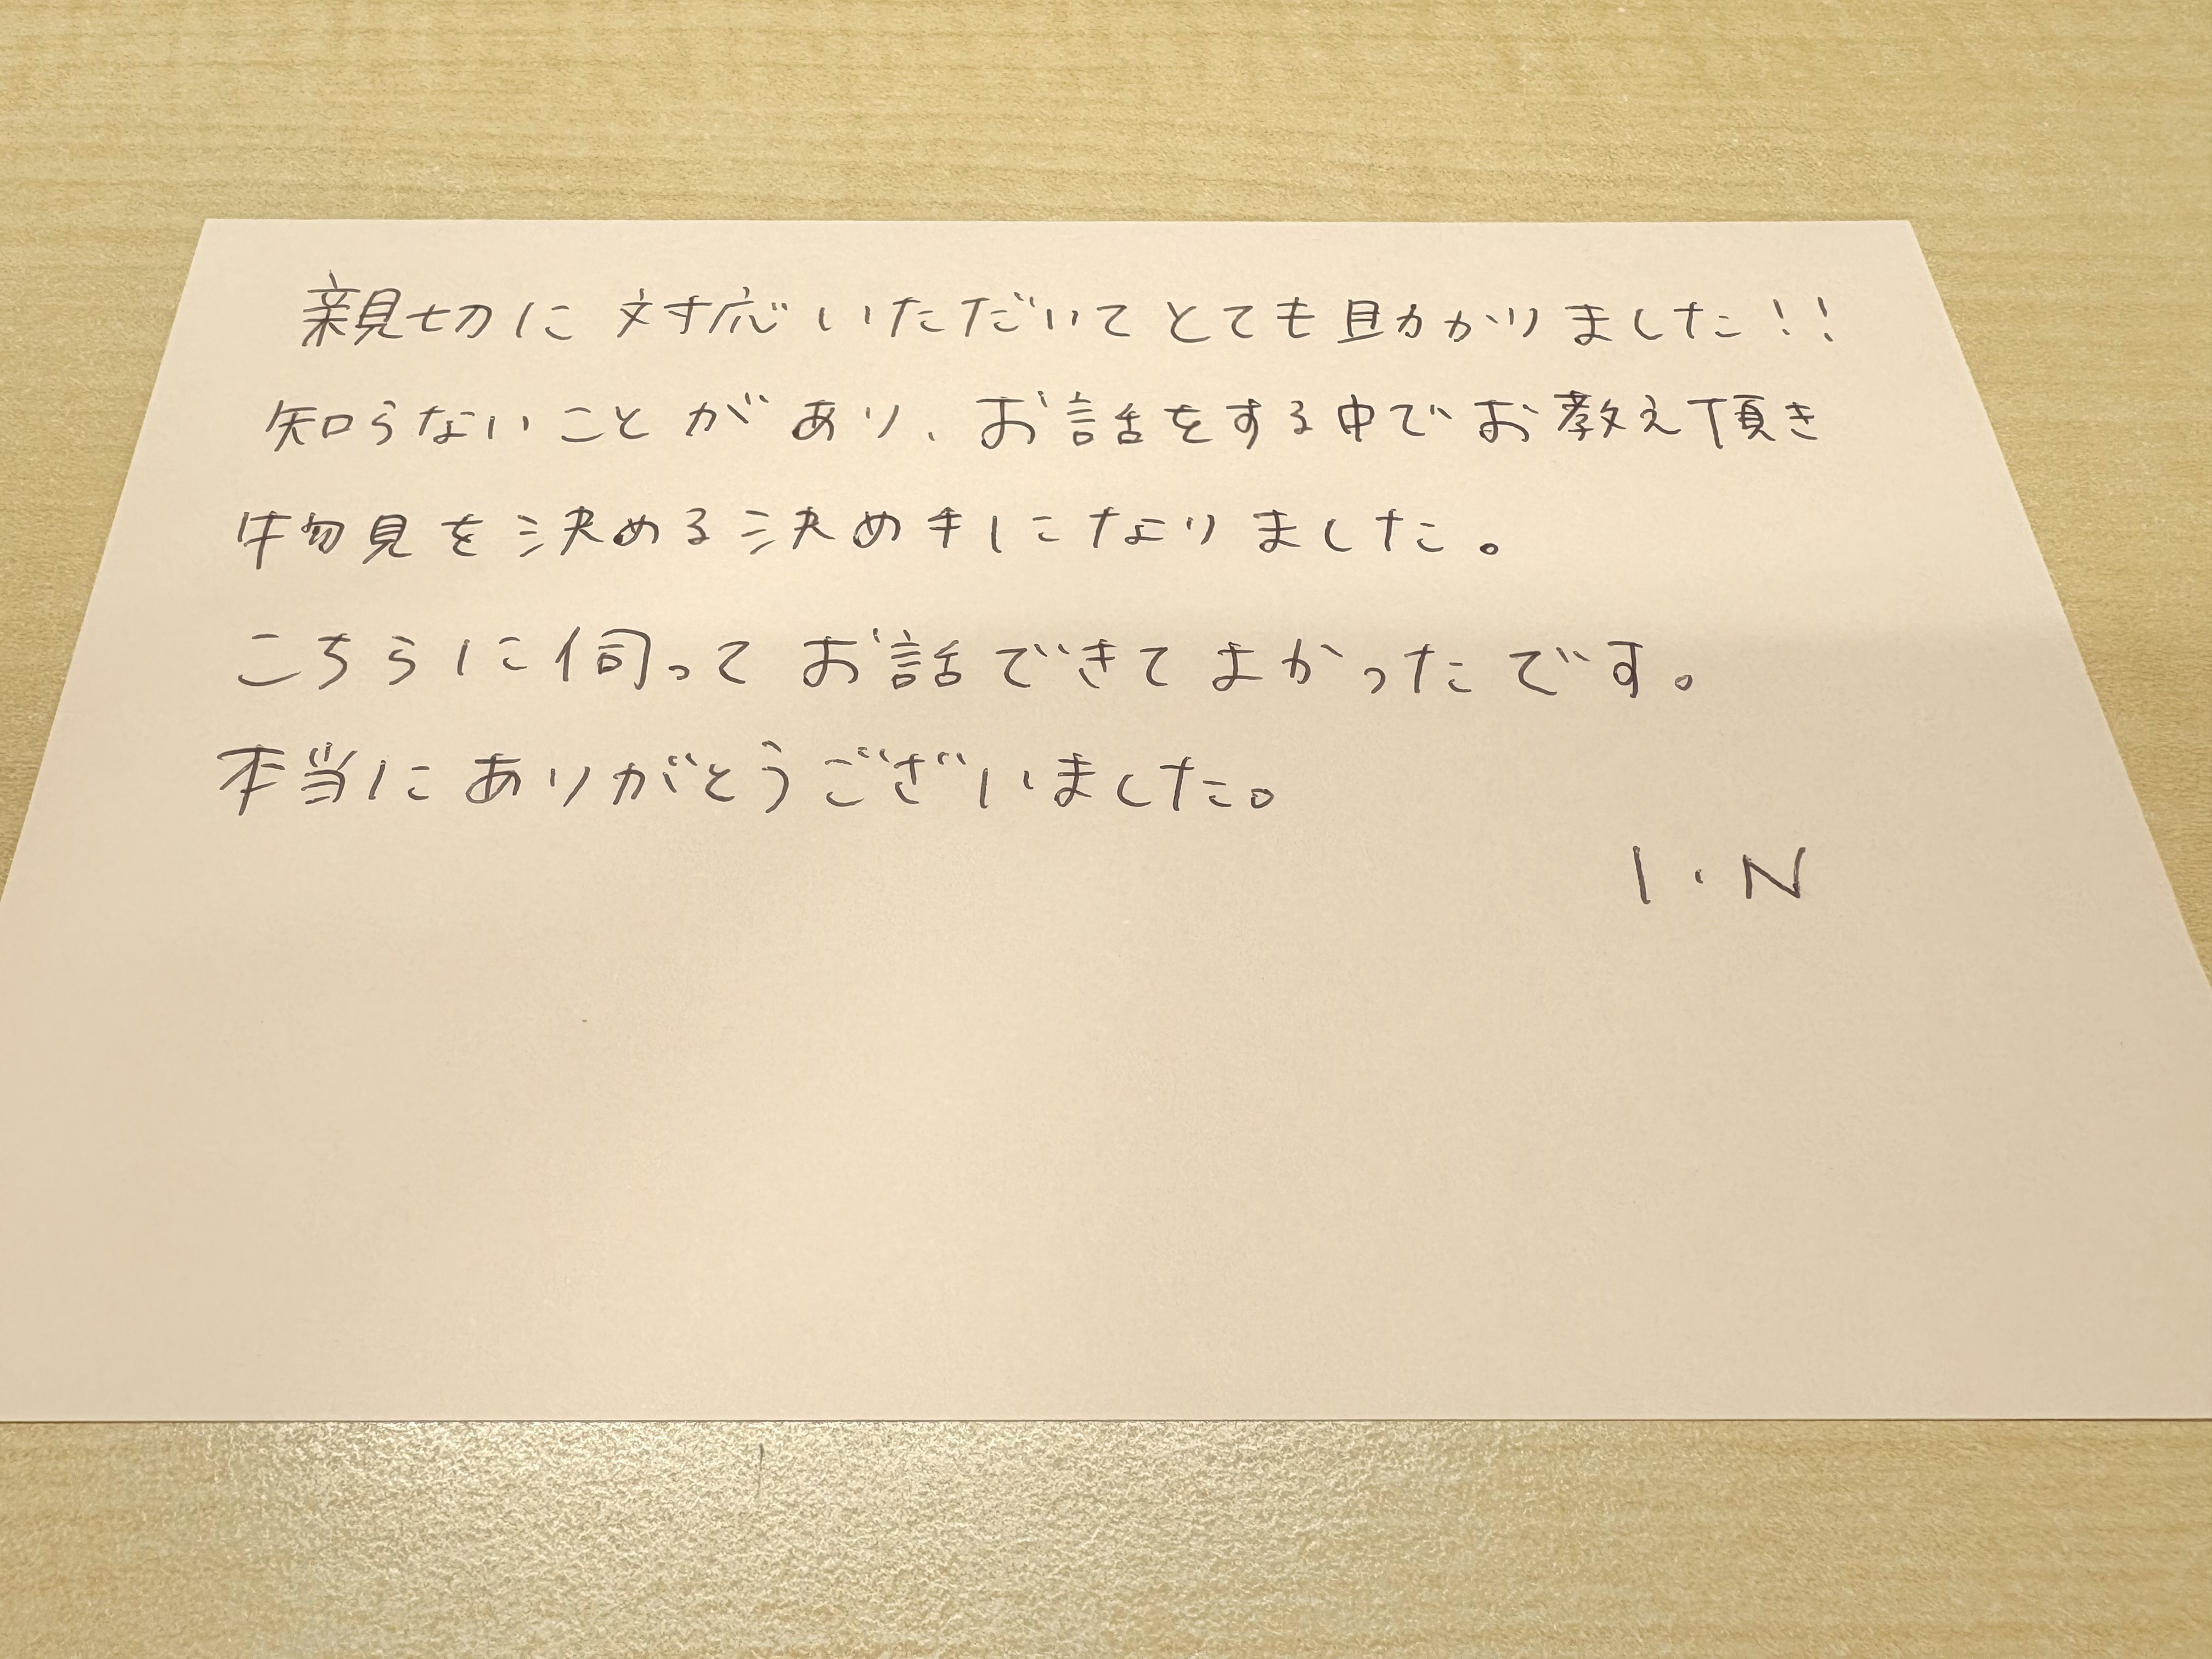 親切に対応いいただいてとても助かりました!!
知らないことがあり、お話をする中でお教え頂き
物見を決める決め手になりました。
こちらに伺ってお話できてよかったです。
本当にありがとうございました。
I・N